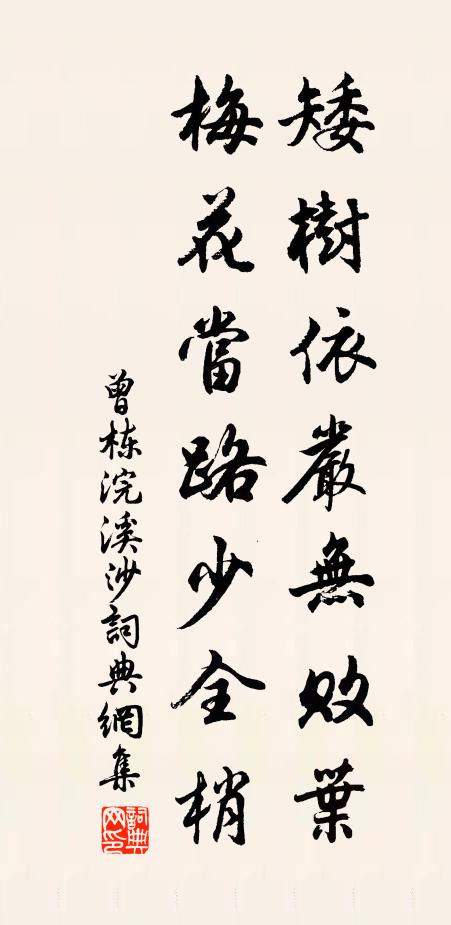 矮樹依嚴無敗葉
梅花當路少全梢
曾棟浣溪沙詞典網集
詞典网印